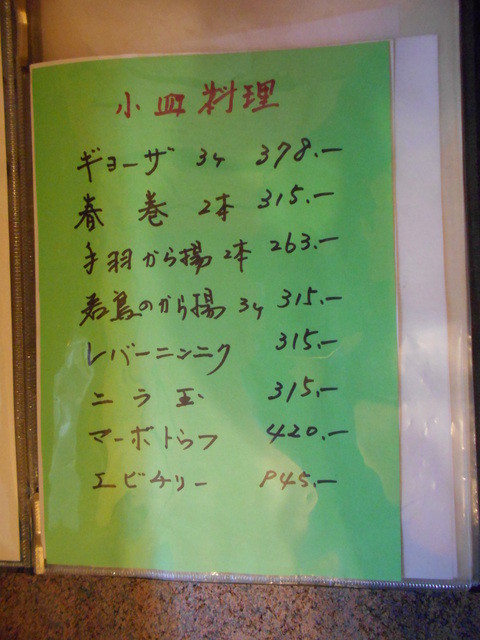 小皿料理
ギョーザ 3ケ 378.-
春巻 2本 315.-
手羽から揚 2本 263.-
若鳥のから揚 3ケ 315.-
レバーニンニク 315.-
ニラ玉 315.-
マーボトウフ 420.-
エビチリー 945.-